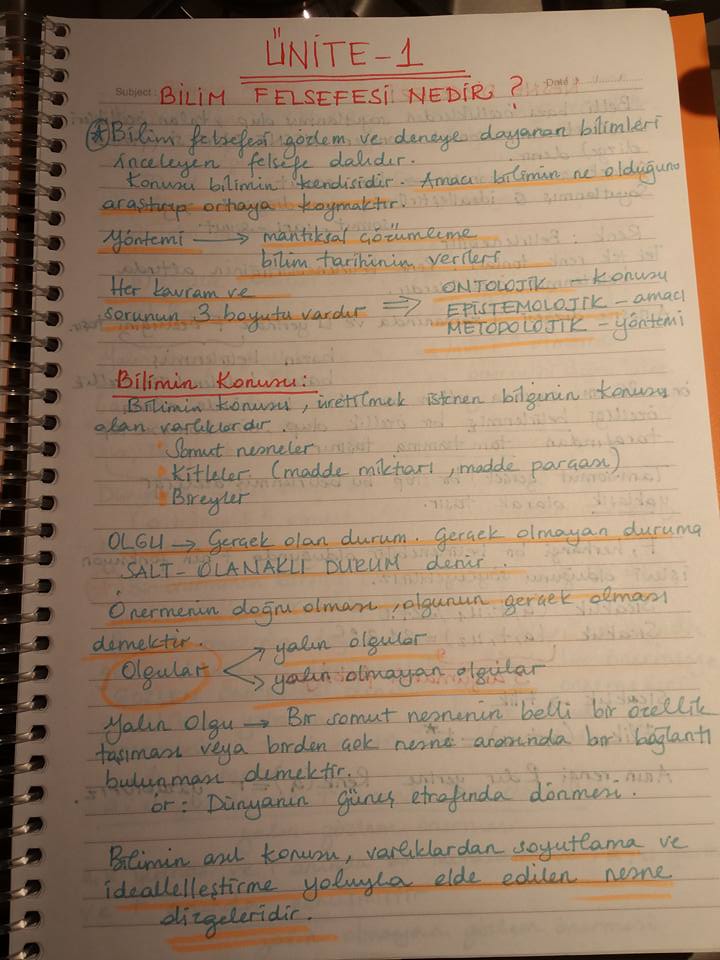 ÜNİTE-1
Subject
Date
BİLİM FELSEFESİ NEDİR?
* Bilim felsefesi gözlem ve deneye dayanan bilimleri
inceleyen felsefe dalıdır.
Konusu bilimin kendisidir. Amacı bilimin ne olduğunu
araştırıp ortaya koymaktır.
Yöntemi → mantıksal çözümleme
bilim tarihinin verileri
Her kavram ve
sorunun 3 boyutu vardır ⇒
ONTOLOJİK - konusu
EPİSTEMOLOJİK - amacı
METODOLOJİK - yöntemi
Bilimin Konusu:
Bilimin konusu, üretilmek istenen bilginin konusu
olan varlıklardır.
Somut nesneler
Kitleler (madde miktarı, madde parçası)
Bireyler
OLGU → Gerçek olan durum. Gerçek olmayan duruma
SALT-OLANAKLI DURUM denir.
Önermenin doğru olması, olgunun gerçek olması
demektir.
Olgular
yalın olgular
yalın olmayan olgular
Yalın Olgu → Bir somut nesnenin belli bir özellik
taşıması veya birden çok nesne arasında bir bağlantı
bulunması demektir.
ör: Dünyanın Güneş etrafında dönmesi.
Bilimin asıl konusu, varlıklardan soyutlama ve
ideallelleştirme yoluyla elde edilen nesne
dizgeleridir.